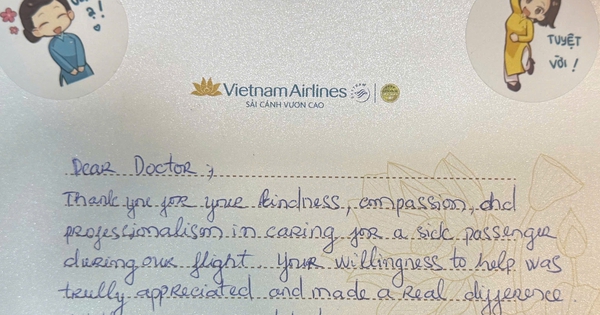 ạ!
TUYỆT
VỜI!
Vietnam Airlines
SẢI CÁNH VƯƠN CAO
Dear Doctor,
Thank you for your kindness, compassion, and
professionalism in caring for a sick passenger
during our flight. Your willingness to help was
trully appreciated and made a real difference.